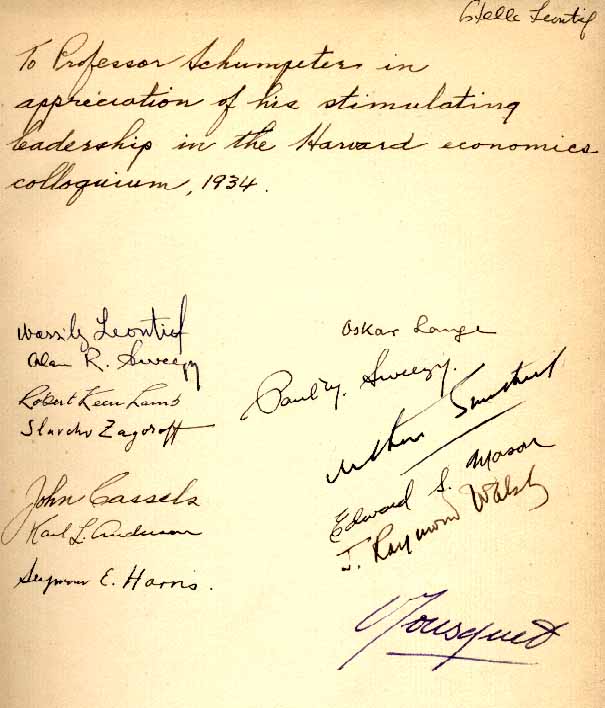 Estelle Leontief
To Professor Schumpeter in
appreciation of his stimulating
leadership in the Harvard economics
colloquium, 1934.
Wassily Leontief
Alan R. Sweezy
Robert Keen Lamb
Slavcho Zagoroff
John Cassels
Karl L. Anderson
Seymour E. Harris.
Oskar Lange
Paul M. Sweezy.
Arthur Smithies
Edward S. Mason
J. Raymond Walsh
Bousquet